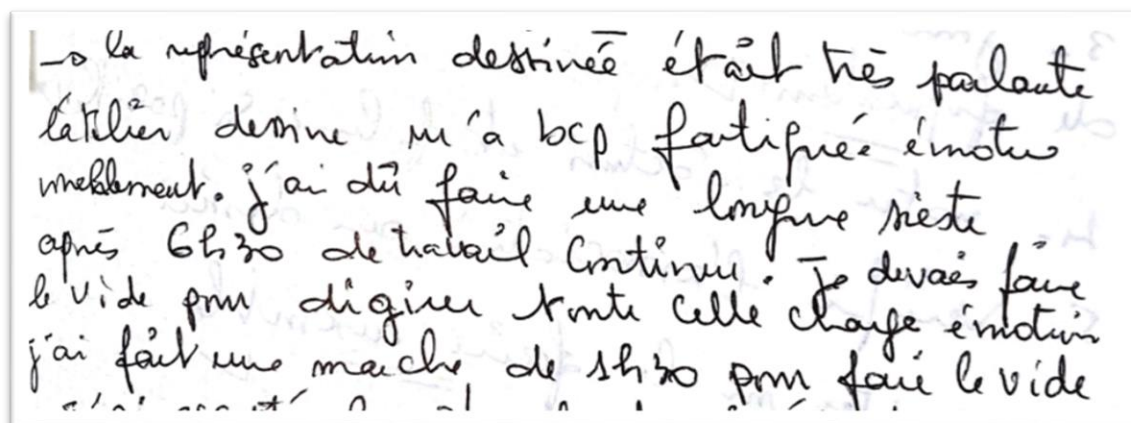 → la représentation dessinée était très parlante
l'atelier dessine m'a bcp fatiguée émotio
nnellement. j'ai dû faire une longue sieste
après 6h30 de travail continu. Je devais faire
le vide pour digérer toute cette charge émotion
j'ai fait une marche de 1h30 pour faire le vide